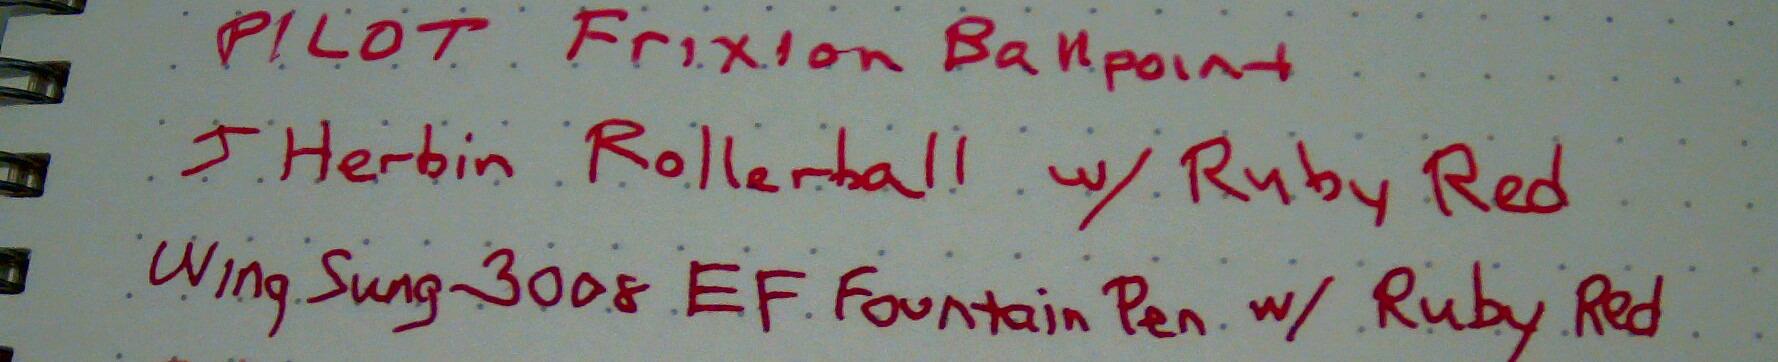 PILOT Frixion Ballpoint
J Herbin Rollerball w/ Ruby Red
Wing Sung-3008 EF Fountain Pen w/ Ruby Red